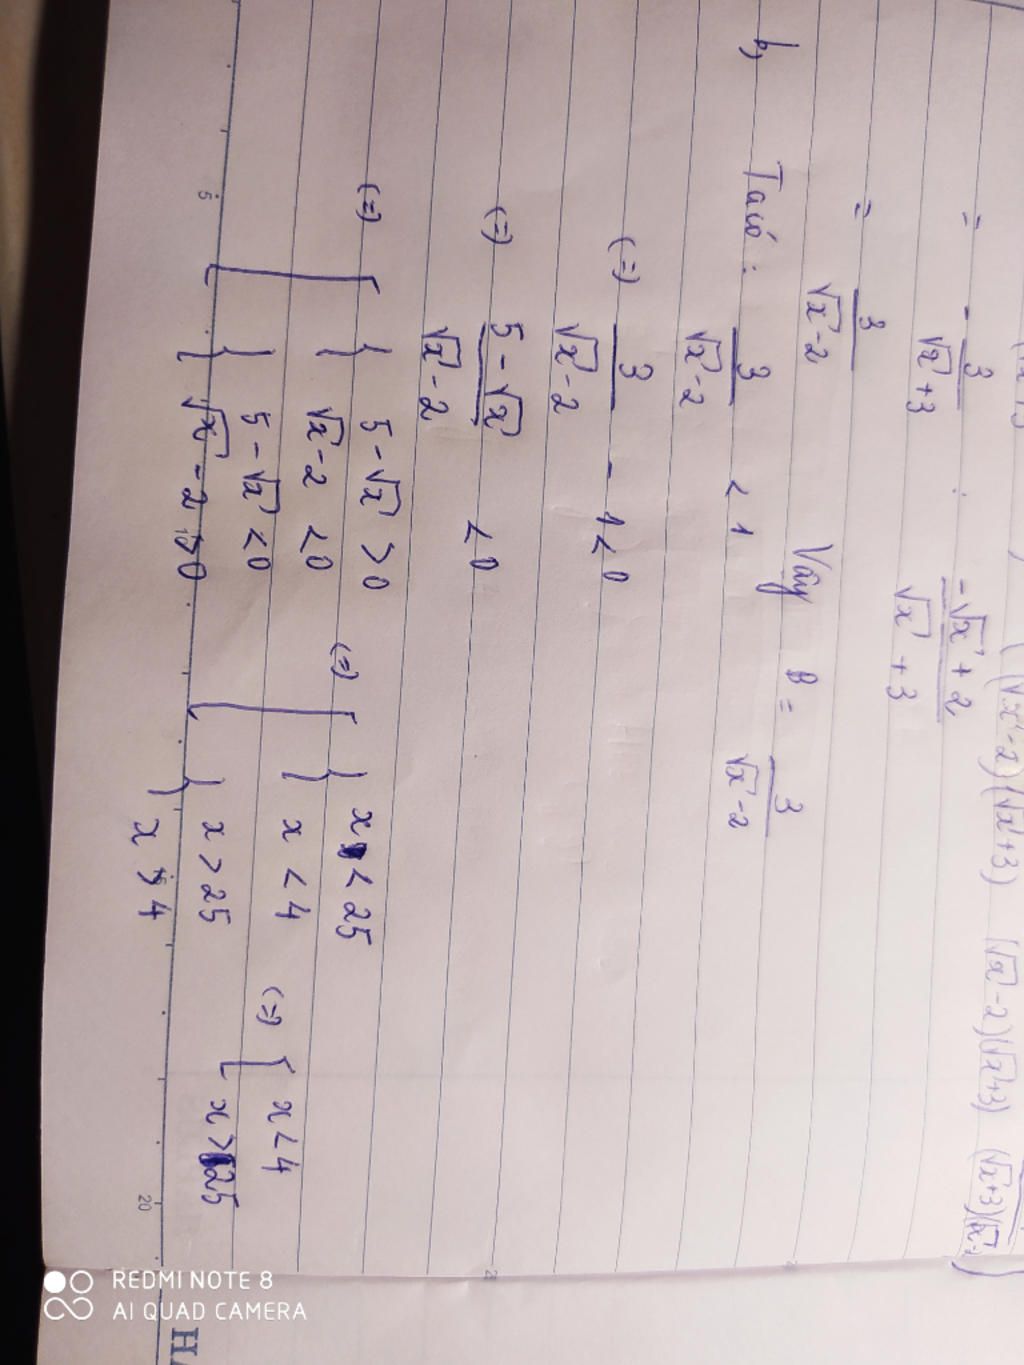 (√x-2)(√x+3) (√x-2)(√x+3) (√x+3)(√x-2)
= - 3/(√x+3) : (-√x+2)/(√x+3)
= 3/(√x-2) Vậy B = 3/(√x-2)
b, Ta có : 3/(√x-2) < 1
(=) 3/(√x-2) - 1 < 0
(=) (5-√x)/(√x-2) < 0
(=) [ { 5-√x > 0 (=) [ { x < 25
√x-2 < 0 x < 4 (=) [ x < 4
{ 5-√x < 0 { x > 25 x > 25
√x-2 > 0 x > 4
5 20
REDMI NOTE 8
AI QUAD CAMERA